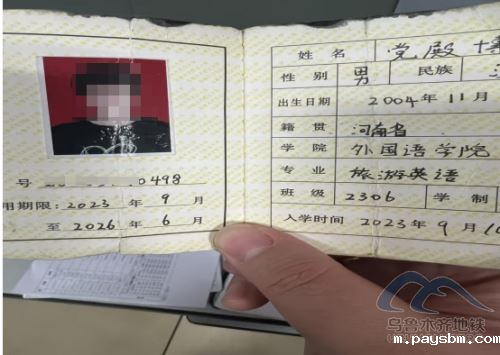 姓 名 党殿博
性 别 男 民族
出生日期 2004年11月
籍 贯 河南省
学 院 外国语学院
专 业 旅游英语
班 级 2306 学 制
入学时间 2023年9月10
号 0498
用期限: 2023 年 9 月
至 2026 年 6 月
乌鲁木齐地铁
m.paysbm.com